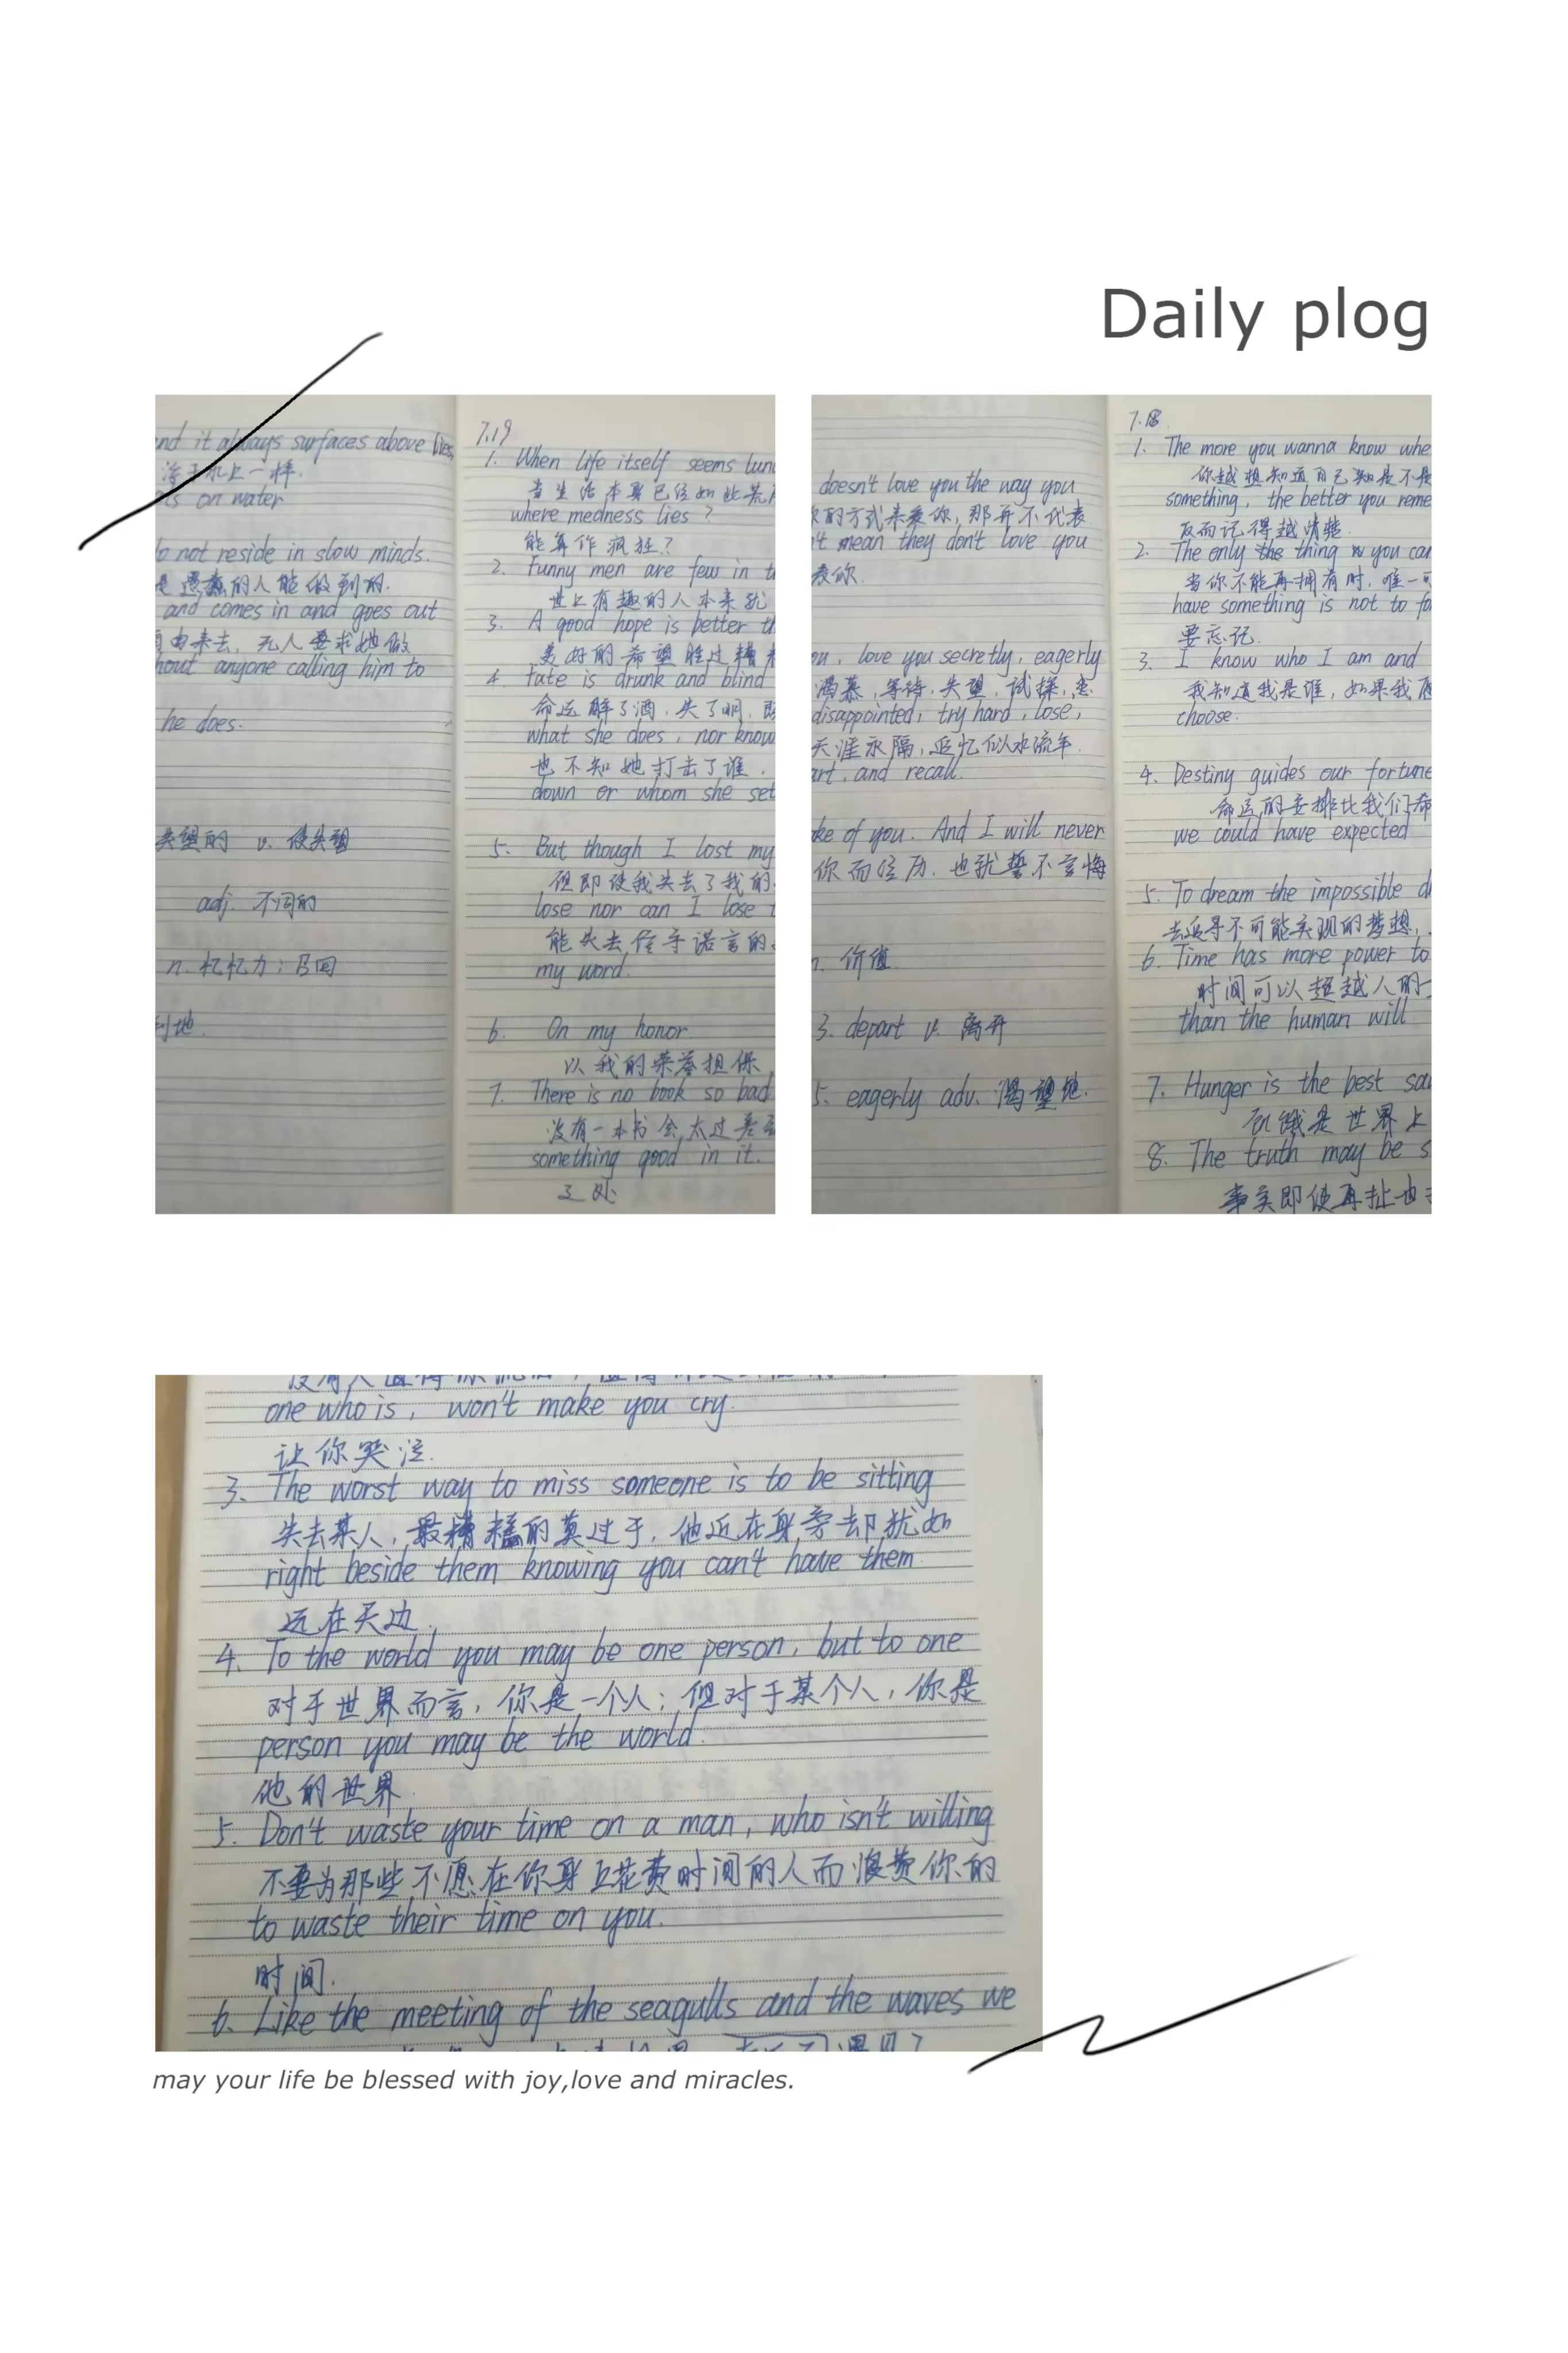 Daily plog
nd it always surfaces above lies,
浮于水上一样.
ts on water
o not reside in slow minds.
是愚蠢的人能做到的.
and comes in and goes out
自由来去, 无人要求她做
hout anyone calling him to
he does.
失望的 v. 使失望
adj. 不同的
n. 忆忆力; 召回
到地.
7.19
1. When life itself seems lun
当生活本身已经如此荒
where medness lies ?
能算作疯狂?
2. Funny men are few in t
世上有趣的人本来就
3. A good hope is better th
美好的希望胜过糟
4. Fate is drunk and blind
命运醉了酒, 失了明,
what she does, nor know
也不知她打击了谁,
down or whom she set
5. But though I lost my
但即使我失去了我的
lose nor can I lose t
能失去信守诺言的
my word.
6. On my honor.
以我的荣誉担保
7. There is no book so bad
没有一本书会太过差
something good in it.
之处
doesn't love you the way you
的方式来爱你, 那并不代表
't mean they don't love you
爱你.
ou, love you secretly, eagerly
渴慕, 等待, 失望, 试探, 悲
disappointed, try hard, lose,
天涯永隔, 追忆似水流年.
art, and recall.
ke of you. And I will never
你而经历, 也就誓不言悔
n. 价值
3. depart v. 离开
5. eagerly adv. 渴望地.
7.18
1. The more you wanna know whe
你越想知道自己知是不是
something, the better you reme
反而记得越清楚.
2. The only the thing you can
当你不能再拥有时, 唯一可
have something is not to fo
要忘记.
3. I know who I am and
我知道我是谁, 如果我愿
choose.
4. Destiny guides our fortune
命运的安排比我们希
we could have expected
5. To dream the impossible d
去追寻不可能实现的梦想,
6. Time has more power to
时间可以超越人的一
than the human will
7. Hunger is the best sau
饥饿是世界上
8. The truth may be s
事实即使再扯也
one who is, won't make you cry.
让你哭泣.
3. The worst way to miss someone is to be sitting
失去某人, 最糟糕的莫过于, 他近在身旁却犹如
right beside them knowing you can't have them
远在天边.
4. To the world you may be one person, but to one
对于世界而言, 你是一个人; 但对于某个人, 你是
person you may be the world.
他的世界.
5. Don't waste your time on a man, who isn't willing
不要为那些不愿在你身上花费时间的人而浪费你的
to waste their time on you.
时间.
6. Like the meeting of the seagulls and the waves we
may your life be blessed with joy,love and miracles.